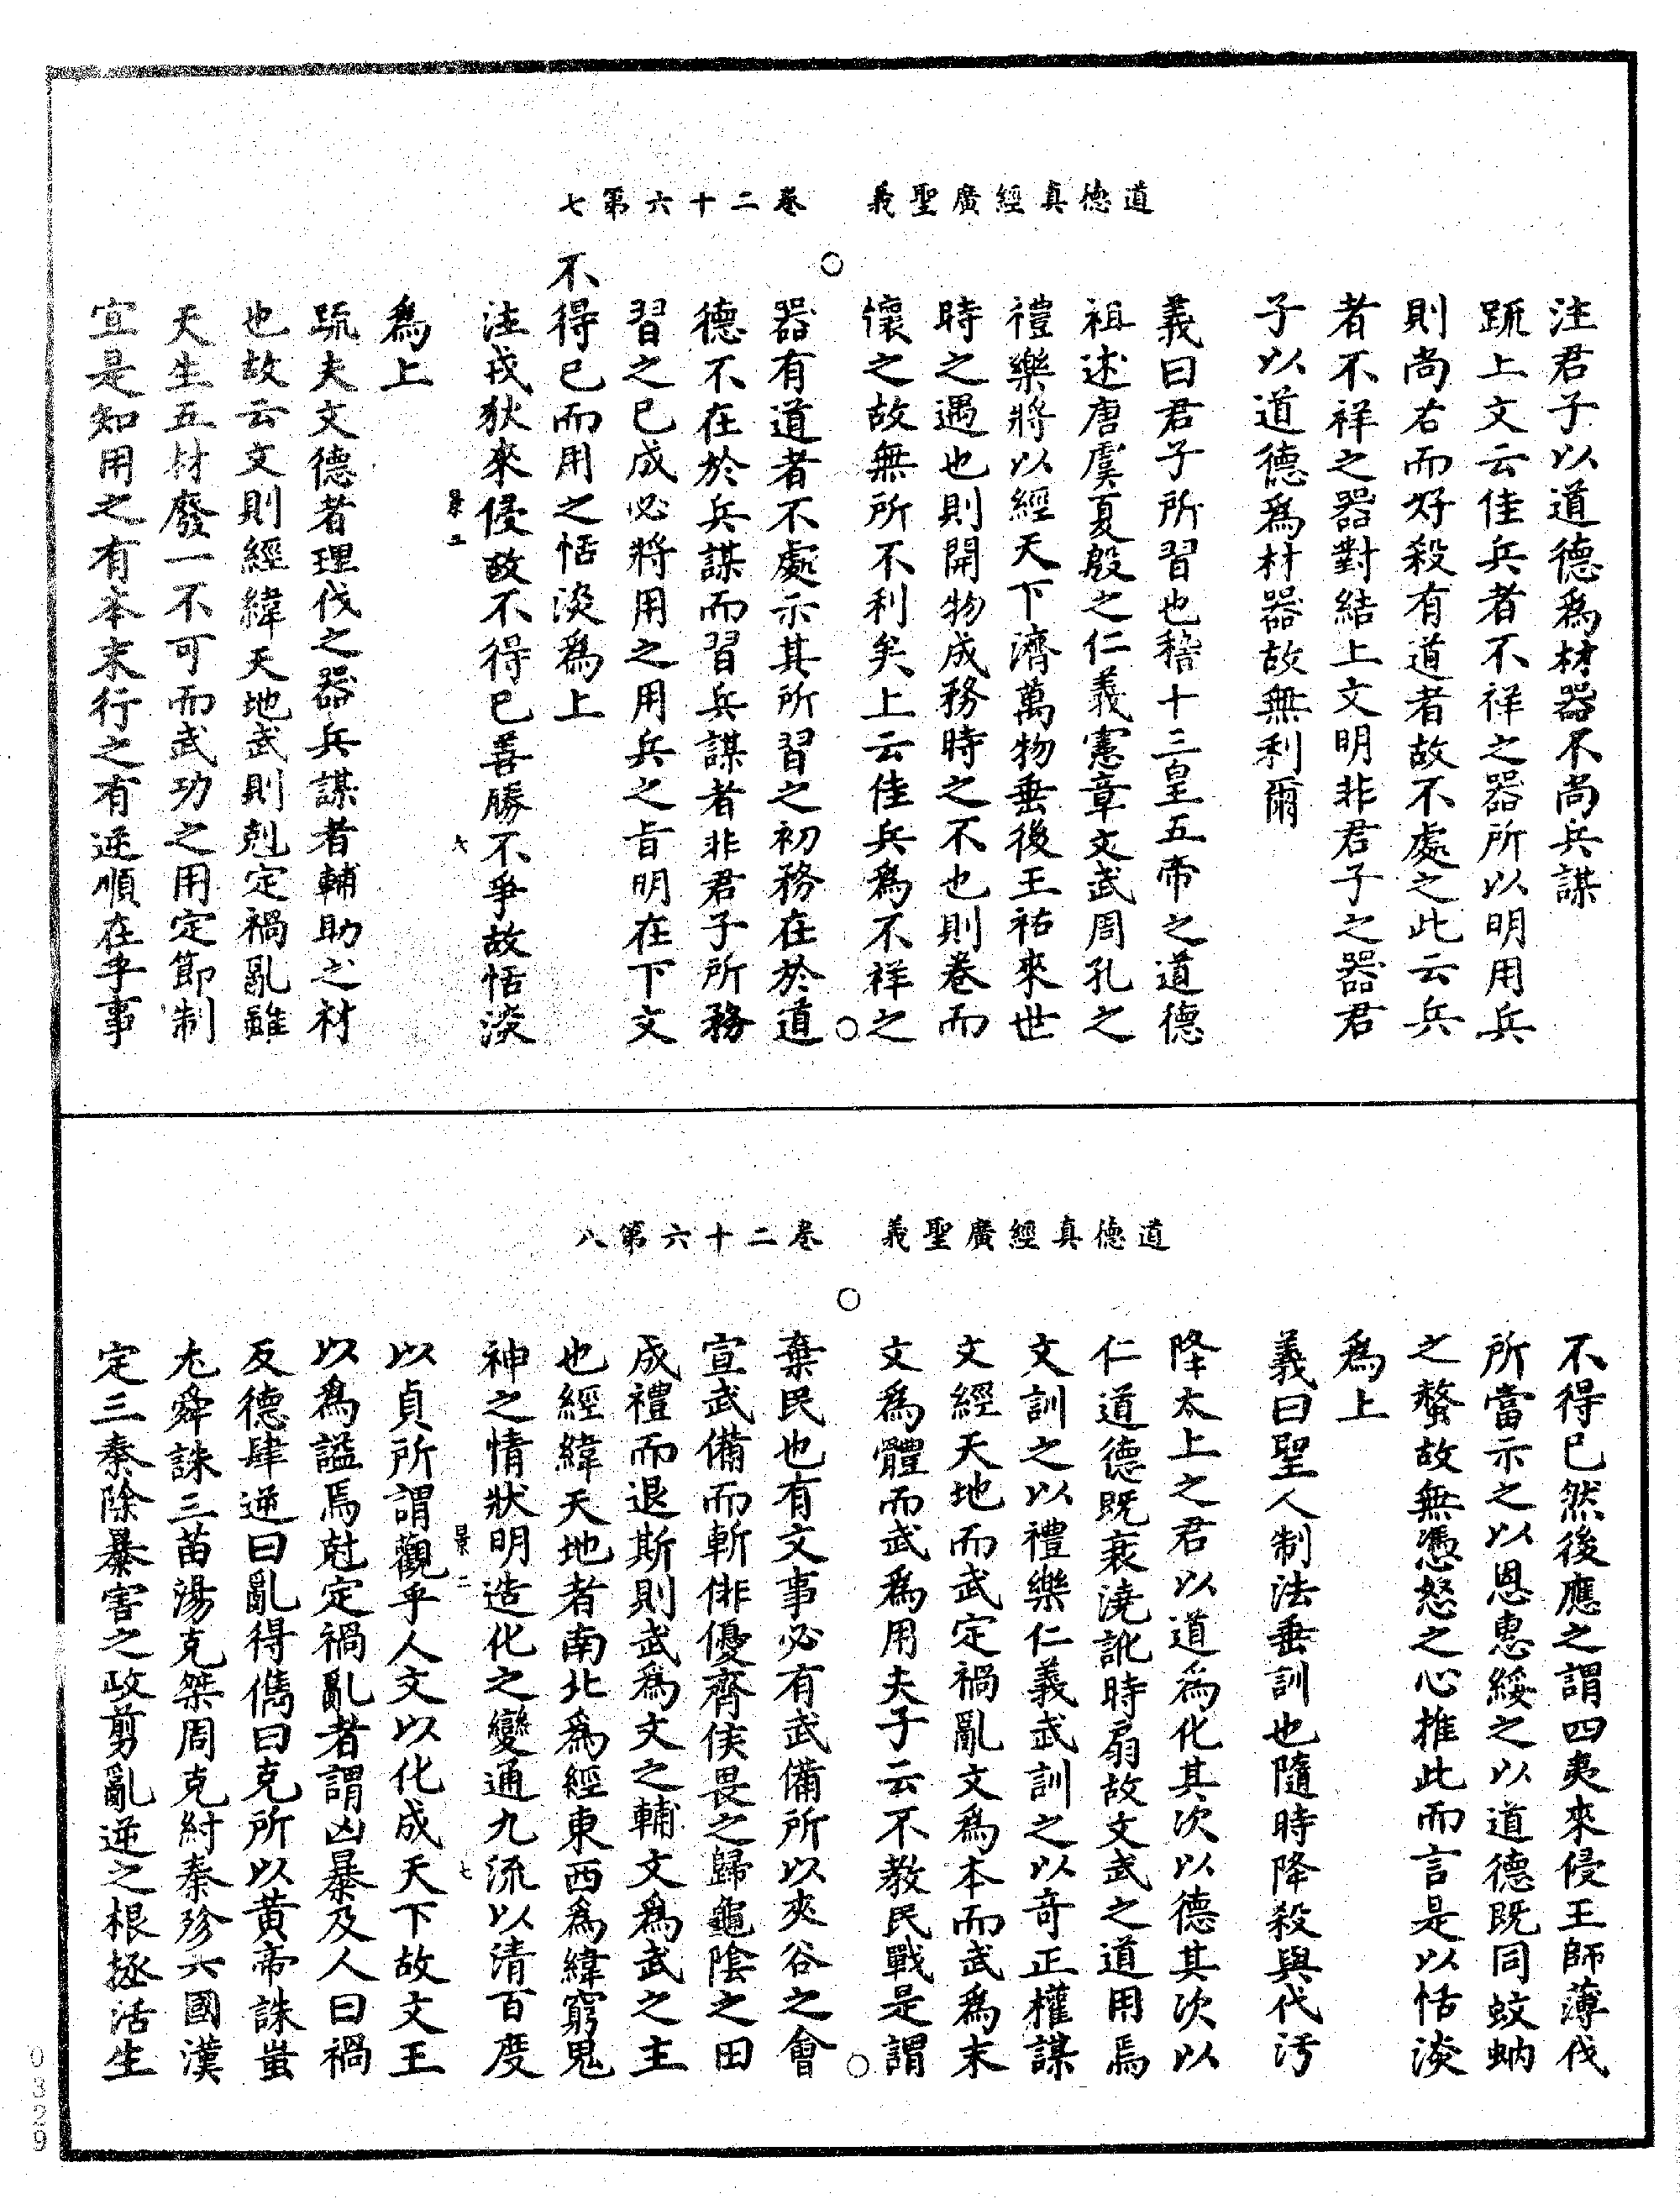 道德真經廣聖義　卷二十六第七
注君子以道德爲材器不尚兵謀
䟽上文云佳兵者不祥之器所以明用兵
則尚右而好殺有道者故不處之此云兵
者不祥之器對結上文明非君子之器君
子以道德爲材器故無利爾
義曰君子所習也稽十三皇五帝之道德
祖述唐虞夏殷之仁義憲章文武周孔之
禮樂將以經天下濟萬物垂後王祐來世
時之遇也則開物成務時之不也則卷而
懷之故無所不利矣上云佳兵爲不祥之
器有道者不處示其所習之初務在於道
德不在於兵謀而習兵謀者非君子所務
習之已成必將用之用兵之旨明在下文
不得已而用之恬淡爲上
注戎狄來侵故不得已善勝不爭故恬淡
爲上
䟽夫文德者理伐之器兵謀者輔助之材
也故云文則經緯天地武則剋定禍亂雖
天生五材廢一不可而武功之用定節制
宜是知用之有本末行之有逆順在乎事
道德真經廣聖義　卷二十六第八
不得已然後應之謂四夷來侵王師薄伐
所當示之以恩惠綏之以道德既同蚊蚋
之螫故無憑怒之心推此而言是以恬淡
爲上
義曰聖人制法垂訓也隨時降殺與代汚
降太上之君以道爲化其次以德其次以
仁道德既衰澆訛時扇故文武之道用焉
文訓之以禮樂仁義武訓之以奇正權謀
文經天地而武定禍亂文爲本而武爲末
文爲體而武爲用夫子云不教民戰是謂
棄民也有文事必有武備所以夾谷之會
宣武備而斬俳優齊侯畏之歸龜陰之田
成禮而退斯則武爲文之輔文爲武之主
也經緯天地者南北爲經東西爲緯窮鬼
神之情狀明造化之變通九流以清百度
以貞所謂觀乎人文以化成天下故文王
以爲謚焉尅定禍亂者謂凶暴及人曰禍
反德肆逆曰亂得儁曰克所以黃帝誅蚩
尤舜誅三苗湯克桀周克紂秦殄六國漢
定三秦除暴害之政剪亂逆之根拯活生
0329